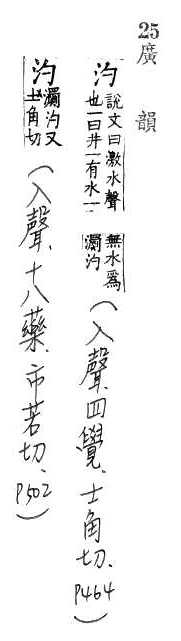 25 廣韻
汋 說文曰激水聲也一曰井一有水一無水爲瀱汋(入聲、四覺、士角切、P464)
汋 瀱汋又士角切(入聲、十八藥、市若切、P502)